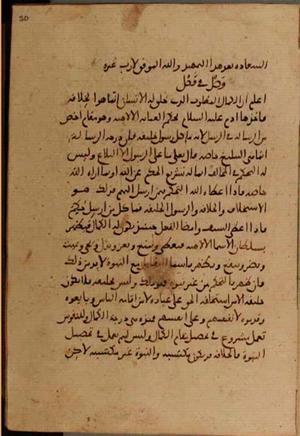 السعاده بعد هدا التمهيد والله الموفق لا رب غيره
وصل في فصل
اعلم ان الكمال المطلوب الدي خلق له الانسان انما هو الخلافه
فاخدها ادم عليه السلام بحكم العنايه الالاهيه وهو مقام اخص
من الرساله في الرسل لانه ما كل رسول خليفه فان درجه الرساله
انما هي التبليغ خاصه قال تعلى ما على الرسول الا البلاغ وليس
له التحكم في المخالف انما له تشريع الحكم عن الله او بما اراه الله
خاصه فادا اعطاه الله التحكم فيمن ارسل اليهم فدلك هو
الاستخلاف والخلافه والرسول الخليفه فما كل من ارسل حكم
فادا اعطي السيف وامضا الفعل حينئد يكون له الكمال فيظهر
بسلطان الاسما الالاهيه فيعطي ويمنع ويعز ويدل ويحي ويميت
ويضر وينفع ويظهر باسما التقابل مع النبوه لا بد من دلك
فان ظهر بالتحكم من غير نبوه فهو ملك وليس بخليفه فلا يكون
خليفه الا من استخلفه الحق على عباده لا من اقامه الناس وبايعوه
وقدموه لانفسهم وعلى انفسهم فهده هي درجه الكمال وللنفوس
تعمل مشروع في تحصيل مقام الكمال وليس لهم تعمل في تحصيل
النبوه فالخلافه قد تكون مكتسبه والنبوه غير مكتسبه لاكن